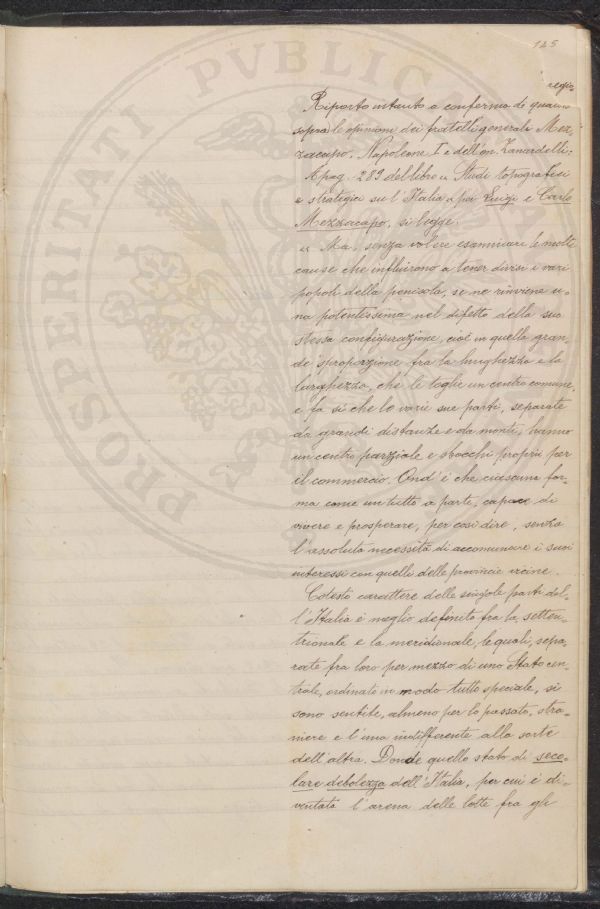 125
regio-
Riporto intanto a conferma di quanto
sopra le opinione dei fratelli generali Mez-
zacapo, Napoleone I e dell'on. Zanardelli:
A pag. 289 del libro « Studi topografici
e strategici su l'Italia » per Luigi e Carlo
Mezzacapo, si legge:
« Ma, senza volere esaminare le molte
cause che influirono a tener divisi i vari
popoli della penisola, se ne rinviene u-
na potentissima nel difetto della sua
stessa configurazione, cioè in quella gran-
de sproporzione fra la lunghezza e la
larghezza, che le toglie un centro comune,
e fa sì che le varie sue parti, separate
da grandi distanze e da monti, hanno
un centro parziale e sbocchi proprii per
il commercio. Ond' è che ciascuna for-
ma come un tutto a parte, capace di
vivere e prosperare, per così dire, senza
l'assoluta necessità di accomunare i suoi
interessi con quelli delle provincie vicine.
Cotesto carattere delle singole parti del-
l'Italia è meglio definito fra la setten-
trionale e la meridionale, le quali, sepa-
rate fra loro per mezzo di uno Stato cen-
trale, ordinato in modo tutto speciale, si
sono sentite, almeno per lo passato, stra-
niere e l'una indifferente alla sorte
dell'altra. Donde quello stato di seco-
lare debolezza dell'Italia, per cui è di-
ventata l'arena delle lotte fra gli
PROSPERITATI PVBLICAE